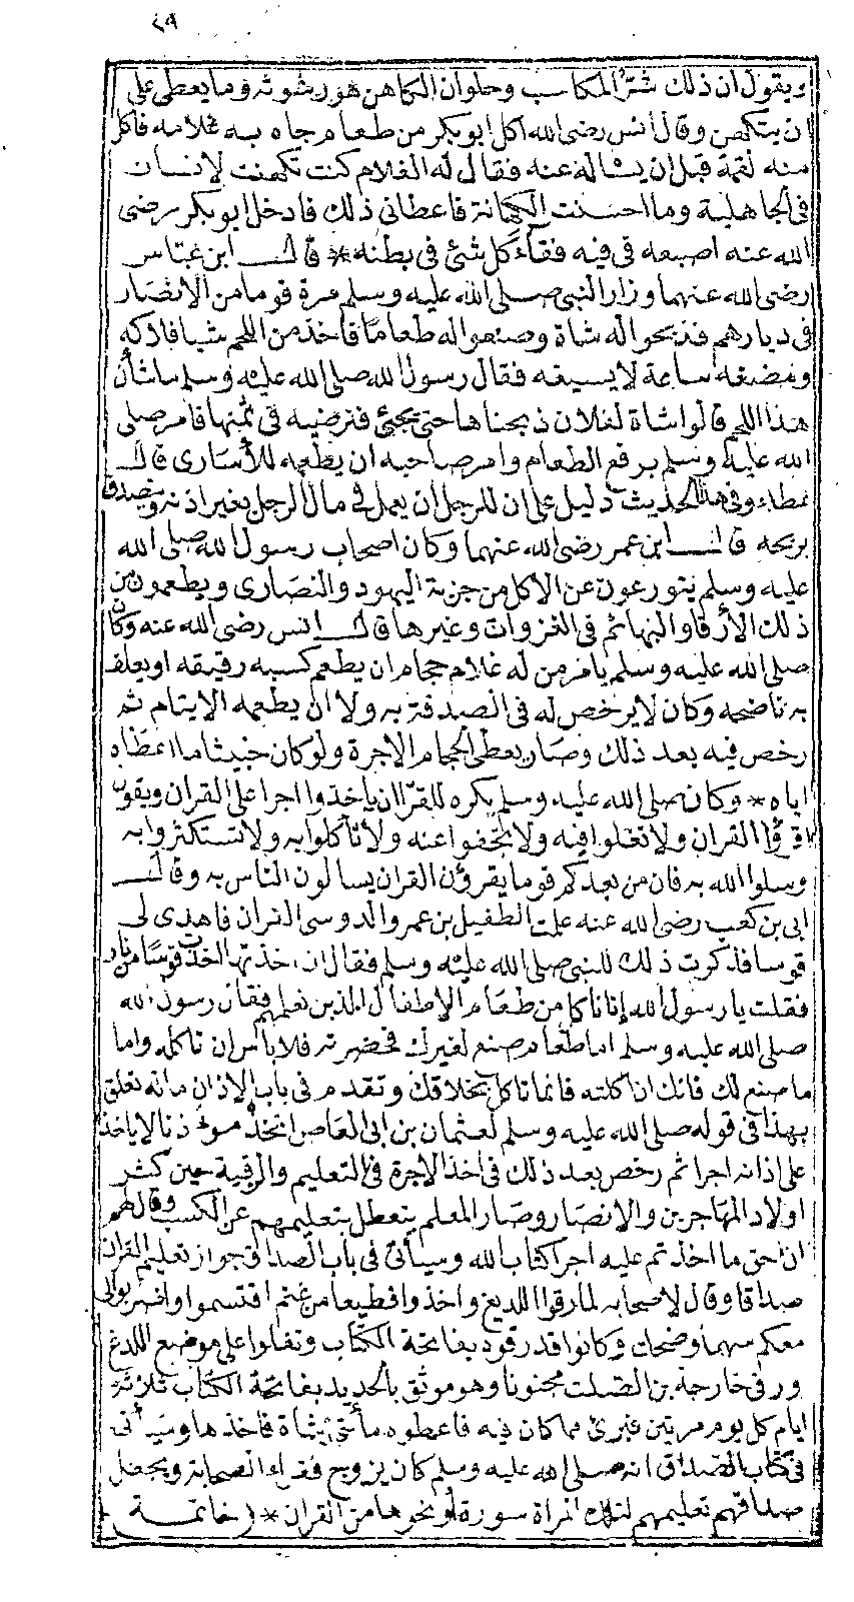 ٤٩
ويقول ان ذلك شر المكاسب وحلوان الكاهن هو رشوته وما يعطى على
ان يتكهن وقال انس رضى الله اكل ابو بكر من طعام جاه به غلامه فاكل
منه لقمة قبل ان يساله عنه فقال له الغلام كنت تكهنت لانسان
فى الجاهلية وما احسنت الكهانة فاعطانى ذلك فادخل ابو بكر رضى
الله عنه اصبعه فى فيه فقاء كل شئ فى بطنه * قال ابن عباس
رضى الله عنهما وزار النبى صلى الله عليه وسلم مرة قوما من الانصار
فى ديارهم فذبحوا له شاة وصنعوا له طعاما فاخذ من اللحم شيا فلاكه
ومضغه ساعة لا يسيغه فقال رسول الله صلى الله عليه وسلم ما شان
هذا اللحم قالوا شاة لفلان ذبحناها حتى يجئ فنرضيه فى ثمنها فامر صلى
الله عليه وسلم برفع الطعام وامر صاحبه ان يطعمه للأسارى قال
عطاء وفى هذا الحديث دليل على ان للرجل أن يعمل فى مال الرجل بغير اذنه ويتصدق
بربحه قال ابن عمر رضى الله عنهما وكان اصحاب رسول الله صلى الله
عليه وسلم يتورعون عن الاكل من جزية اليهود والنصارى ويطعمون من
ذلك الأرقاء والبهائم فى الغزوات وغيرها قال انس رضى الله عنه وكان
صلى الله عليه وسلم يامر من له غلام حجام ان يطعم كسبه رقيقه او يعلف
به ناضحه وكان لا يرخص له فى الصدقة به ولا ان يطعمه الايتام ثم
رخص فيه بعد ذلك وصار يعطى الحجام الاجرة ولو كان خبيثا ما اعطاه
اياه * وكان صلى الله عليه وسلم يكره للقراان ياخذوا اجرا على القران ويقول
اقرؤا القران ولا تغلوا فيه ولا تجفوا عنه ولا تأكلوا به ولا تستكثروا به
وسلوا الله به فان من بعدكم قوما يقرؤن القران يسالون الناس به وقال
ابى بن كعب رضى الله عنه علمت الطفيل بن عمرو الدوسى القران فاهدى لى
قوسا فذكرت ذلك للنبى صلى الله عليه وسلم فقال ان اخذتها اخذت قوسا من نار
فقلت يا رسول الله إنا ناكل من طعام الاطفال الذين نعلمهم فقال رسول الله
صلى الله عليه وسلم اما طعام صنع لغيرك فحضرته فلا باس ان تاكله واما
ما صنع لك فانك ان اكلته فانما تاكل بخلاقك وتقدم فى باب الاذان ما له تعلق
بهذا فى قوله صلى الله عليه وسلم لعثمان بن ابى العاص اتخذ موذنا لا ياخذ
على اذانه اجرا ثم رخص بعد ذلك فى اخذ الاجرة فى التعليم والرقية حين كثر
اولاد المهاجرين والانصار وصار المعلم يتعطل بتعليمهم عن الكسب وقال لهم
ان احق ما اخذتم عليه اجرا كتاب الله وسيأتى فى باب الصداق جواز تعليم القران
صداقا وقال لاصحابه لما رقوا اللديغ واخذوا قطيعا من غنم اقتسموا واضربوا لى
معكم سهما وضحك وكانوا قد رقوه بفاتحة الكتاب وتفلوا على موضع اللدغ
ورقى خارجة بن الصلت مجنونا وهو موثق بالحديد بفاتحة الكتاب ثلاثة
ايام كل يوم مرتين فبرئ مما كان فيه فاعطوه مأتى شاة فاخذها وسيأتى
فى كتاب الصداق انه صلى الله عليه وسلم كان يزوج فقراء الصحابة ويجعل
صداقهم تعليمهم لتلك المراة سورة أو نحوها من القران * ( خاتمة )